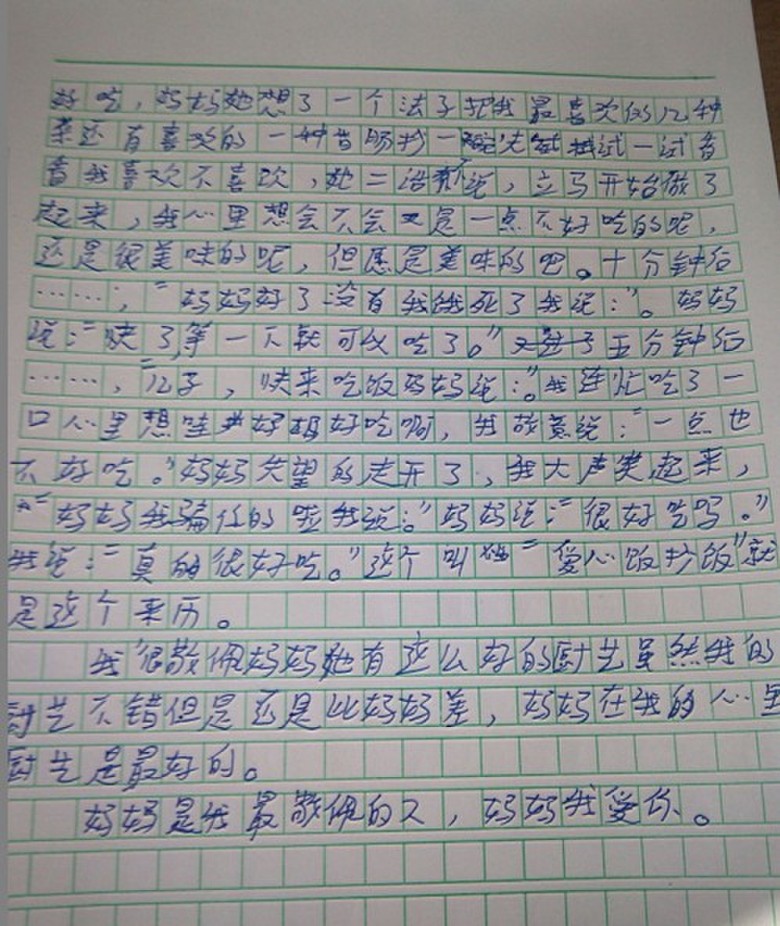 好吃，妈妈她想了一个法子把我最喜欢的几种
菜还有喜欢的一种香肠炒一 试一试看
看我喜欢不喜欢，她二话 说，立马开始做了
起来，我心里想会不会又是一点不好吃的呢，
还是很美味的呢，但愿是美味的吧。十分钟后
……，“妈妈好了没有我饿死了我说：”。妈妈
说：“快了，等一下就可以吃了。”又过了五分钟后
……，“儿子，快来吃饭妈妈说：”。我连忙吃了一
口心里想哇 好好吃啊，我故意说：“一点也
不好吃。”妈妈失望的走开了，我大声笑起来，
“妈妈我骗你的啦我说：”妈妈说：“很好吃吗。”
我说：“真的很好吃。”这个叫 “爱心饭炒饭”就
是这个来历。
我很敬佩妈妈她有这么好的厨艺虽然我的
厨艺不错但是还是比妈妈差，妈妈在我的心里
厨艺是最好的。
妈妈是我最敬佩的人，妈妈我爱你。